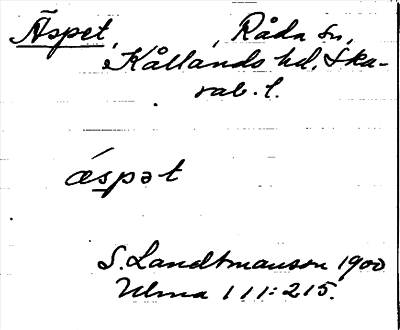 Äspet, Råda sn,
Kållands hd, Ska-
rab. l.
ǽspət
S. Landtmanson 1900
Ulma 111:215.